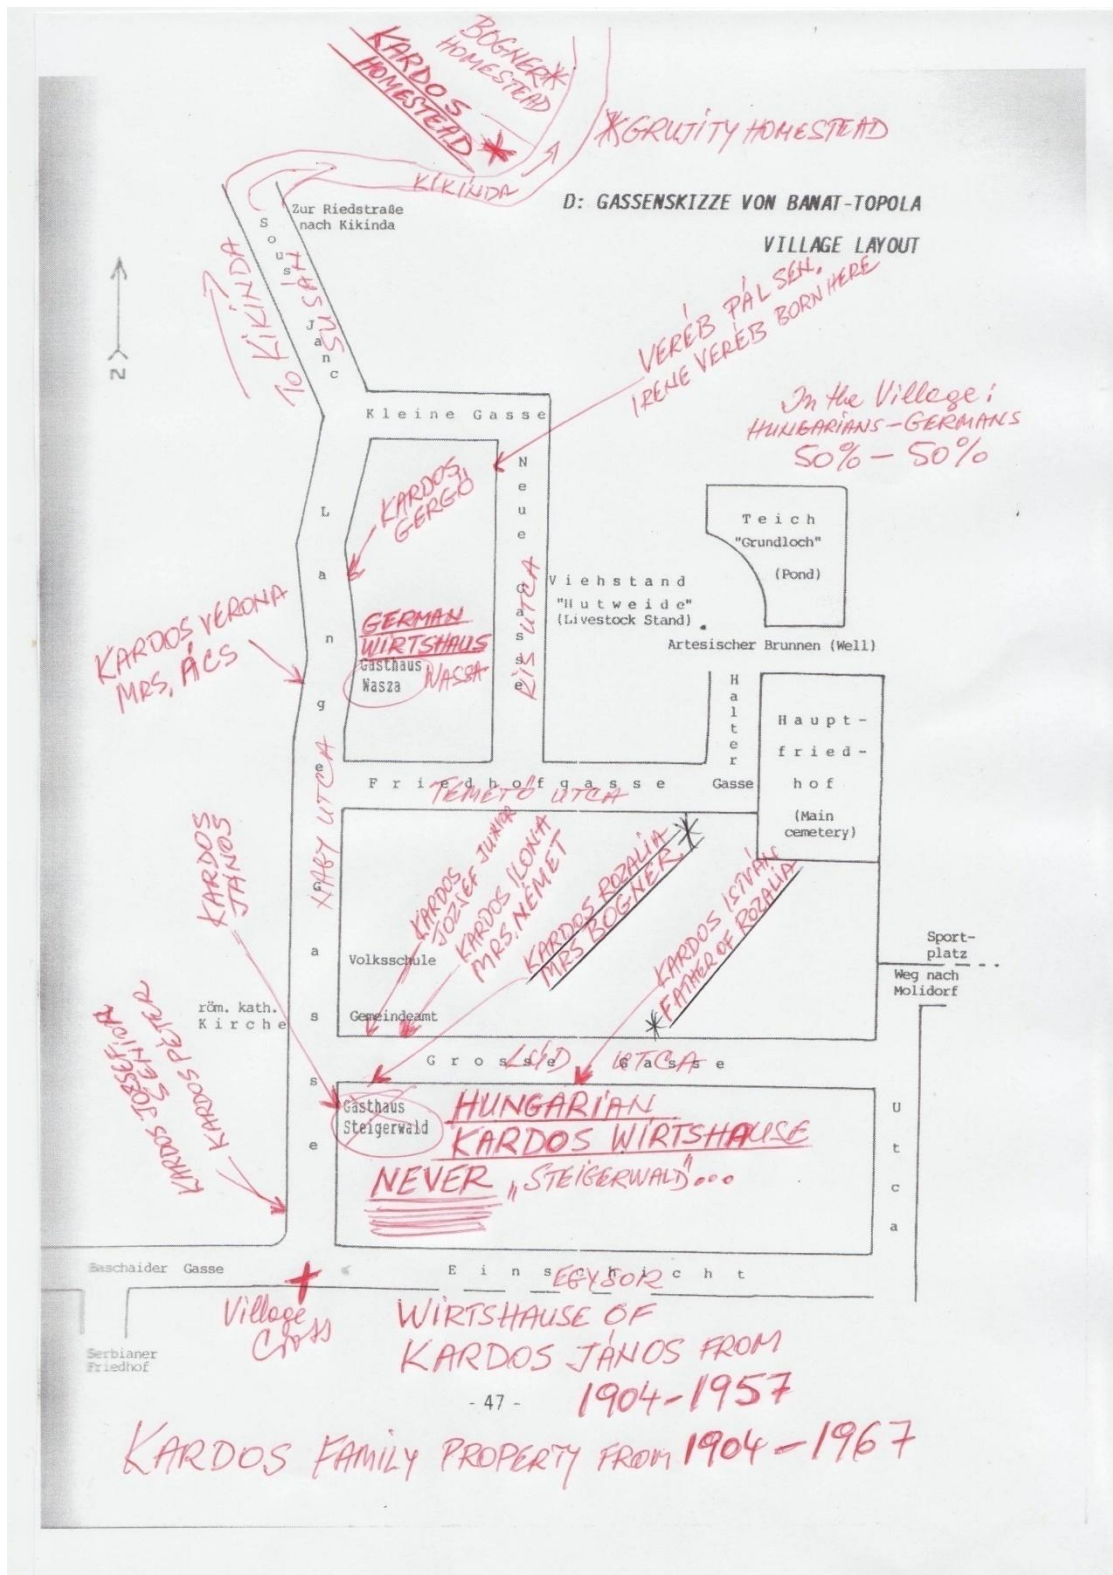 BOGNER
HOMESTEAD
KARDOS
HOMESTEAD
GRUJITY HOMESTEAD
KIKINDA
D: GASSENSKIZZE VON BANAT-TOPOLA
VILLAGE LAYOUT
Zur Riedstraße
nach Kikinda
Sous Janc
SUSÁN
TO KIKINDA
N
VERÉB PÁL SEN.
IRENE VERÉB BORN HERE
In the Village:
HUNGARIANS-GERMANS
50% - 50%
Kleine Gasse
Neue Gasse
KIS UTCA
KARDOS
GERGŐ
Lange Gasse
NABY UTCA
Teich
"Grundloch"
(Pond)
Viehstand
"Hutweide"
(Livestock Stand)
Artesischer Brunnen (Well)
KARDOS VERONA
MRS, ÁCS
GERMAN
WIRTSHAUS
Gasthaus
Wasza
WASSA
Halter
Gasse
Haupt-
fried-
hof
(Main
cemetery)
Friedhofgasse
TEMETŐ UTCA
KARDOS
JÁNOS
KARDOS
JOZSEF-JUNIOR
KARDOS ILONA
MRS, NÉMET
KARDOS ROZALIA
MRS BOGNER.
KARDOS ISTVÁN
FATHER OF ROZALIA
Volksschule
Gemeindeamt
Sport-
platz
Weg nach
Molidorf
röm. kath.
Kirche
KARDOS JOZSEF
SENIOR
KARDOS PÉTER
Grosse Gasse
LUD UTCA
Gasthaus
Steigerwald
HUNGARIAN
KARDOS WIRTSHAUSE
NEVER „STEIGERWALD"...
Utca
Baschaider Gasse
Einschicht
EGYSOR
Village
Cross
Serbianer
Friedhof
WIRTSHAUSE OF
KARDOS JÁNOS FROM
1904-1957
- 47 -
KARDOS FAMILY PROPERTY FROM 1904-1967